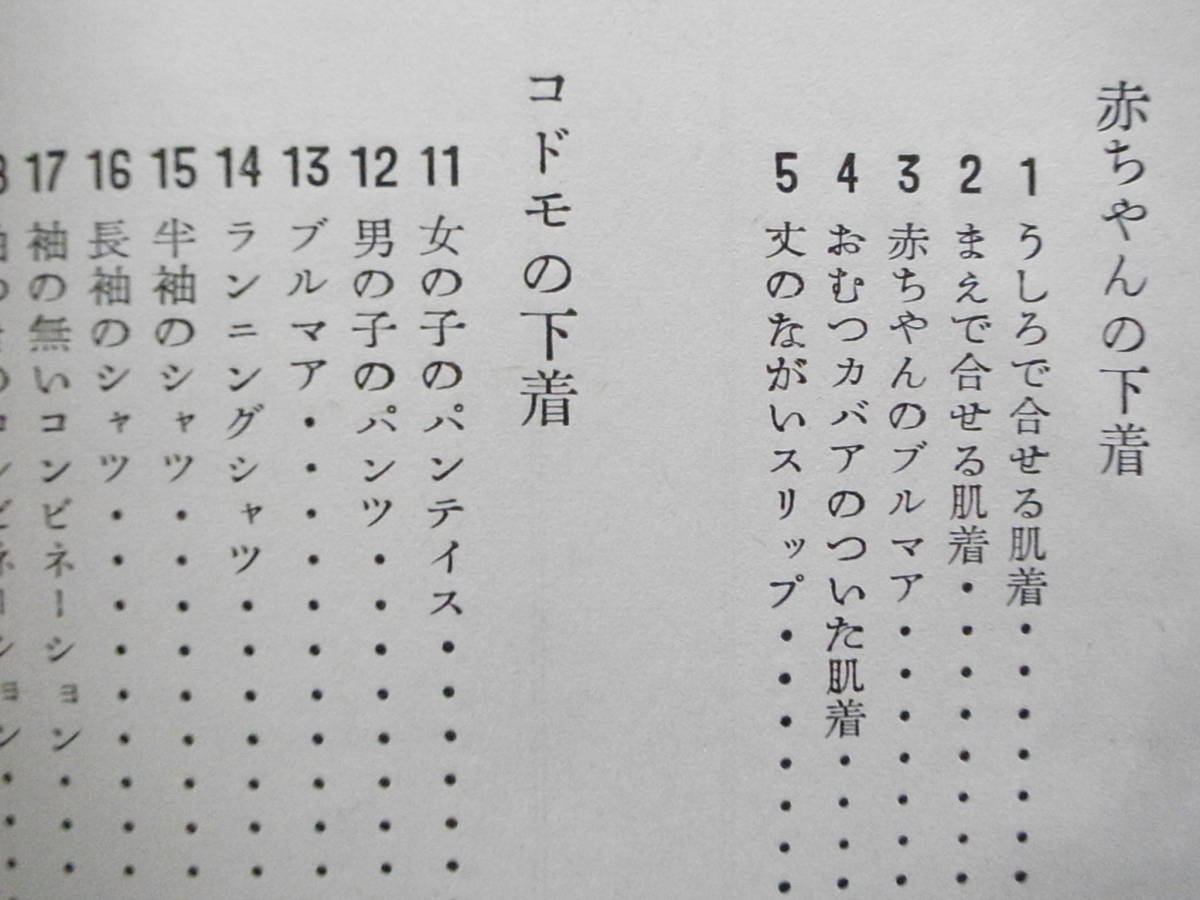 赤ちやんの下着
1 うしろで合せる肌着・・・・・・・
2 まえで合せる肌着・・・・・・・・
3 赤ちやんのブルマア・・・・・・・
4 おむつカバアのついた肌着・・・・
5 丈のながいスリップ・・・・・・・
コドモの下着
11 女の子のパンテイス・・・・・・
12 男の子のパンツ・・・・・・・・
13 ブルマア・・・・・・・・・・・
14 ランニングシャツ・・・・・・・
15 半袖のシャツ・・・・・・・・・
16 長袖のシャツ・・・・・・・・・
17 袖の無いコンビネーション・・・